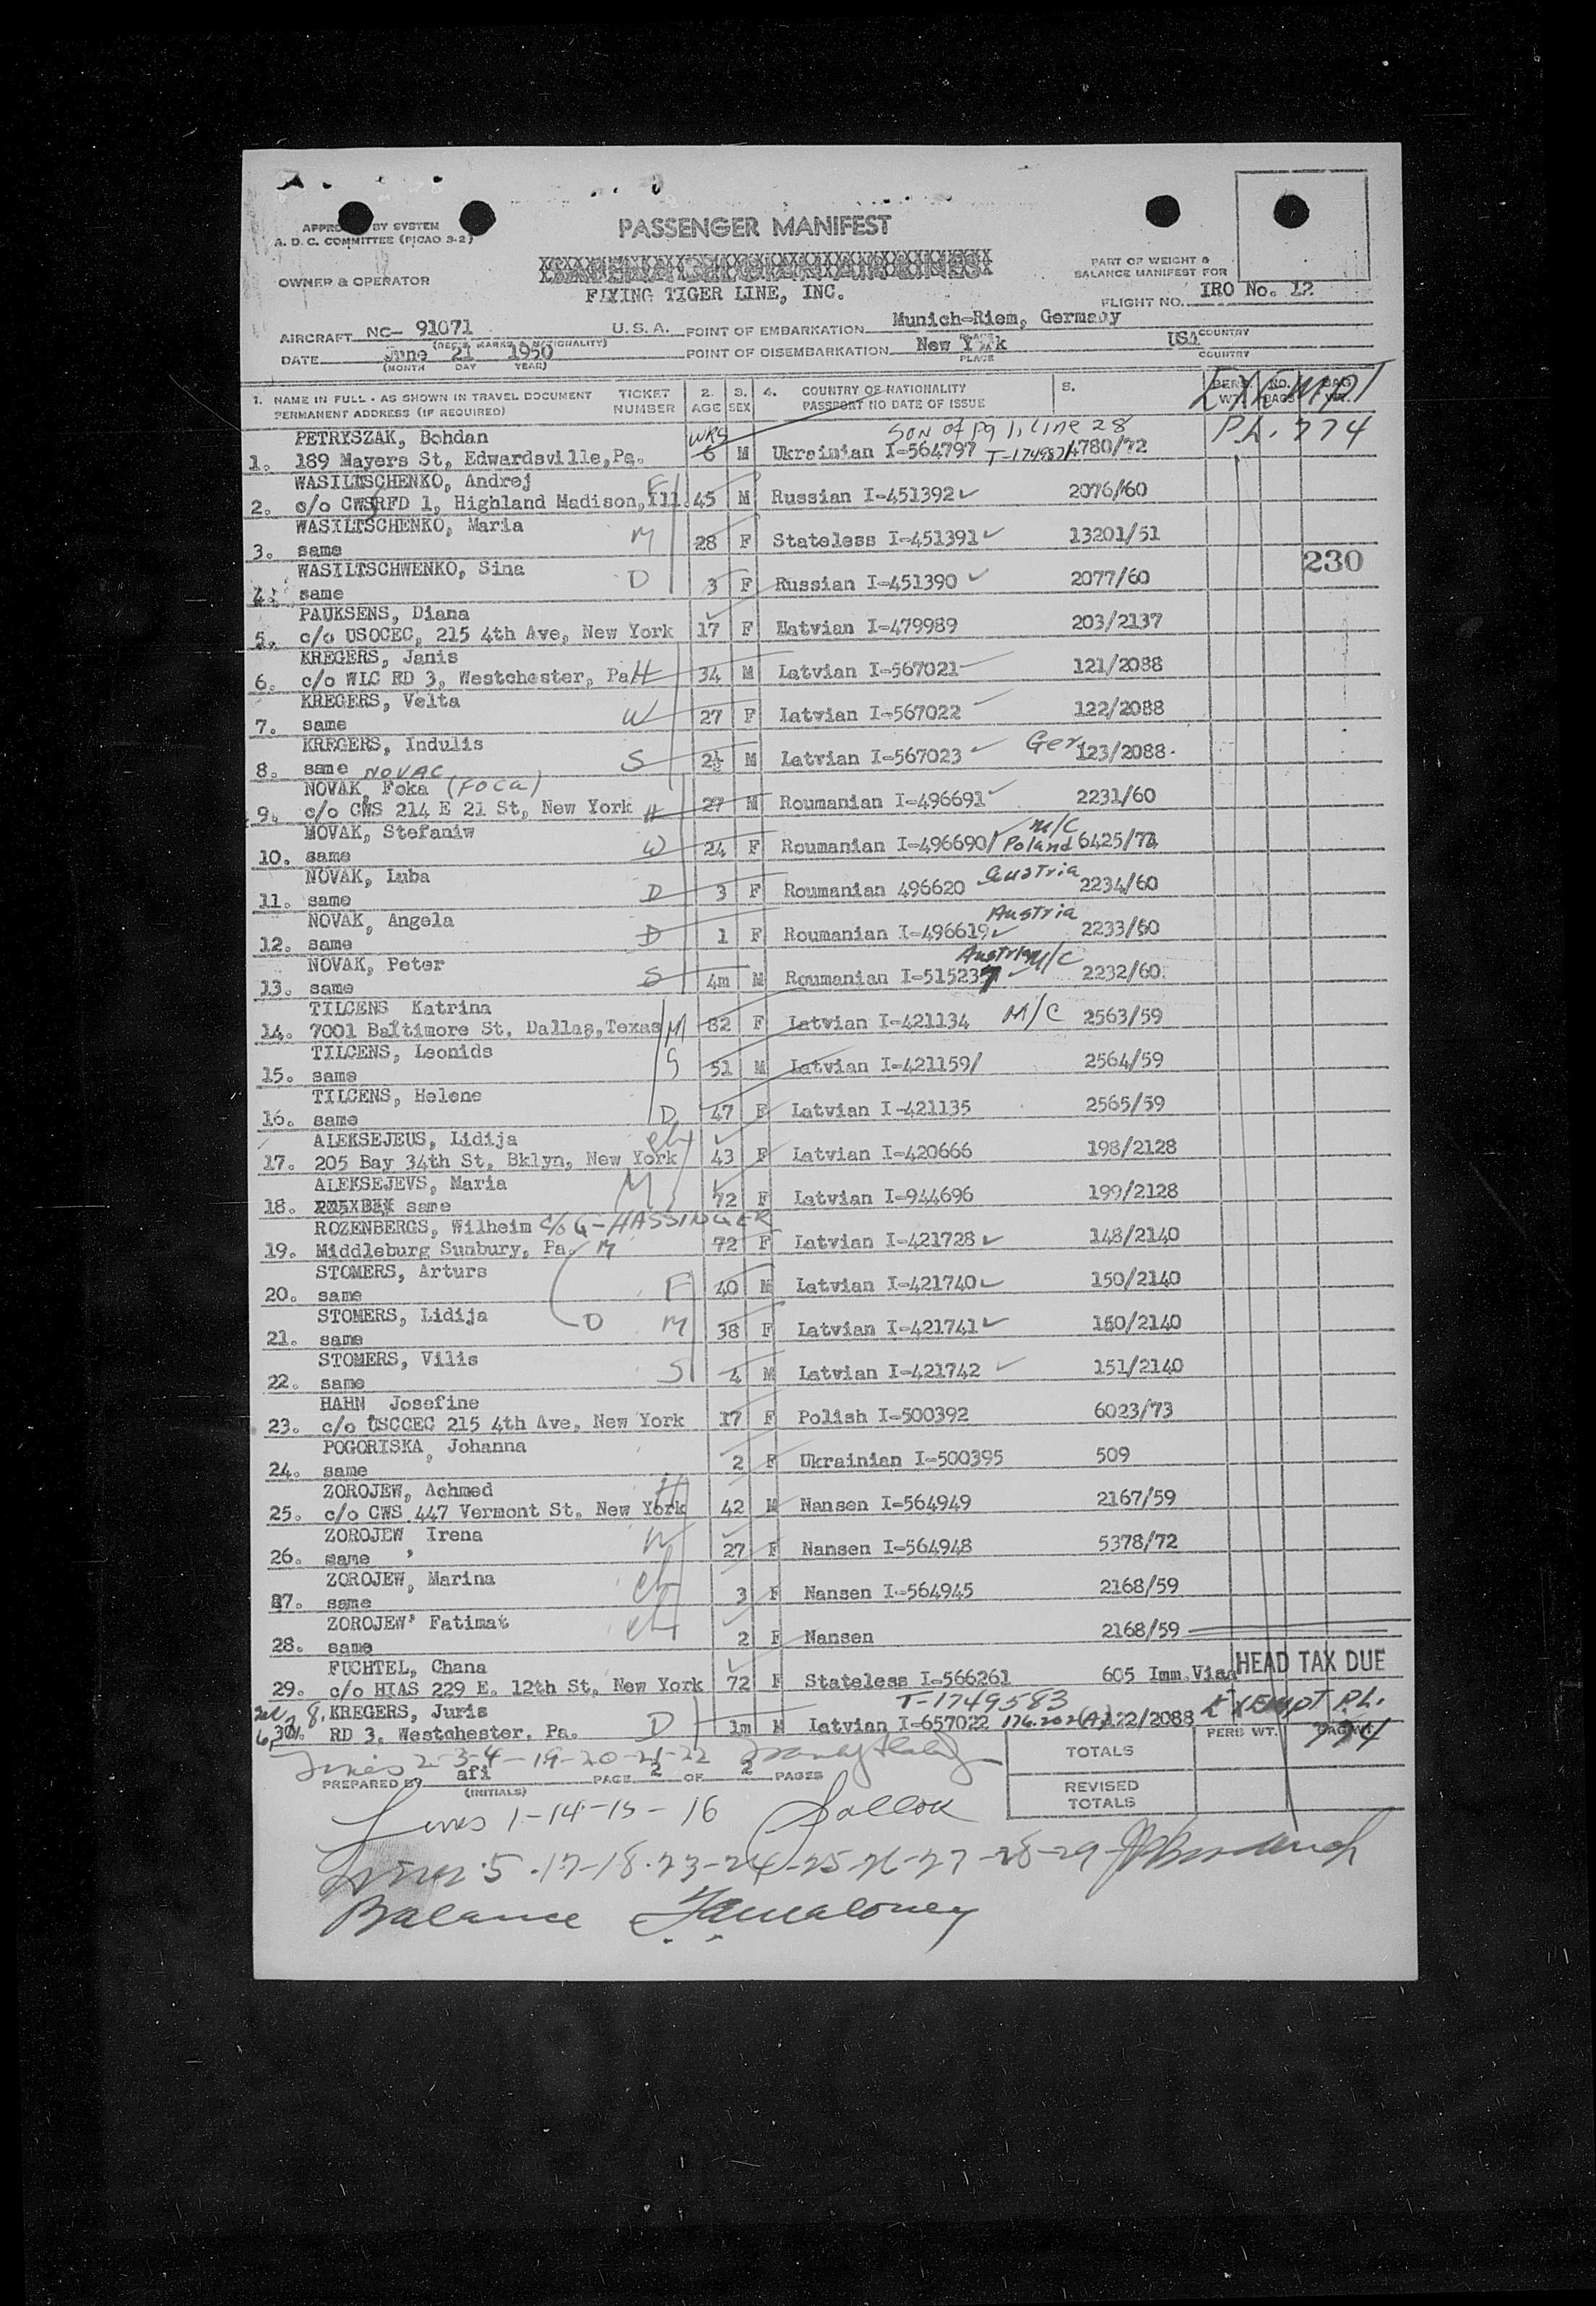 APPROVED BY SYSTEM
A. D. C. COMMITTEE (PICAO S-2)
PASSENGER MANIFEST
OWNER & OPERATOR
FLYING TIGER LINE, INC.
PART OF WEIGHT &
BALANCE MANIFEST FOR
FLIGHT NO. IRO No. 12
AIRCRAFT NC- 91071 U.S.A. POINT OF EMBARKATION Munich-Riem, Germany COUNTRY
(REG'S. MARKS & NATIONALITY)
DATE June 21 1950 POINT OF DISEMBARKATION New York USA
(MONTH DAY YEAR) PLACE COUNTRY
1. NAME IN FULL - AS SHOWN IN TRAVEL DOCUMENT TICKET 2. 3. 4. COUNTRY OF NATIONALITY 5. PERS NO. BAG
PERMANENT ADDRESS (IF REQUIRED) NUMBER AGE SEX PASSPORT NO DATE OF ISSUE WT BAGS WT.
EXEMPT
P.L. 774
PETRYSZAK, Bohdan WRS Son of pg 1, line 28
1. 189 Mayers St, Edwardsville, Pa. 6 M Ukrainian I-564797 4780/72
WASILTSCHENKO, Andrej F
2. c/o CWS RFD 1, Highland Madison, Ill. 45 M Russian I-451392 2076/60
WASILTSCHENKO, Maria M
3. same 28 F Stateless I-451391 13201/51
WASILTSCHWENKO, Sina D 230
4. same 3 F Russian I-451390 2077/60
PAUKSENS, Diana
5. c/o USOCEC, 215 4th Ave, New York 17 F Latvian I-479989 203/2137
KREGERS, Janis
6. c/o WLC RD 3, Westchester, Pa H 34 M Latvian I-567021 121/2088
KREGERS, Velta
7. same W 27 F Latvian I-567022 122/2088
KREGERS, Indulis
8. same S 2½ M Latvian I-567023 Ger. 123/2088
NOVAC
NOVAK, Foka (FOCA)
9. c/o CWS 214 E 21 St, New York H 27 M Roumanian I-496691 2231/60
NOVAK, Stefaniw M/C
10. same W 24 F Roumanian I-496690 Poland 6425/73
NOVAK, Luba Austria
11. same D 3 F Roumanian 496620 2234/60
NOVAK, Angela Austria
12. same D 1 F Roumanian I-496619 2233/60
NOVAK, Peter Austria M/C
13. same S 4m M Roumanian I-515237 2232/60
TILCENS Katrina
14. 7001 Baltimore St, Dallas, Texas M 82 F Latvian I-421134 M/C 2563/59
TILCENS, Leonids
15. same S 51 M Latvian I-421159/ 2564/59
TILCENS, Helene
16. same D 47 F Latvian I-421135 2565/59
ALEKSEJEUS, Lidija ch
17. 205 Bay 34th St, Bklyn, New York 43 F Latvian I-420666 198/2128
ALEKSEJEVS, Maria M
18. same 72 F Latvian I-944696 199/2128
ROZENBERGS, Wilheim c/o G-HASSINGER
19. Middleburg Sunbury, Pa. M 72 F Latvian I-421728 148/2140
STOMERS, Arturs
20. same F 40 M Latvian I-421740 150/2140
STOMERS, Lidija
21. same D M 38 F Latvian I-421741 150/2140
STOMERS, Vilis
22. same S 4 M Latvian I-421742 151/2140
HAHN Josefine
23. c/o USCCEC 215 4th Ave, New York 17 F Polish I-500392 6023/73
POGORISKA, Johanna
24. same 2 F Ukrainian I-500395 509
ZOROJEW, Achmed H
25. c/o CWS 447 Vermont St. New York 42 M Nansen I-564949 2167/59
ZOROJEW, Irena
26. same W 27 F Nansen I-564948 5378/72
ZOROJEW, Marina
27. same ch 3 F Nansen I-564945 2168/59
ZOROJEW, Fatimat
28. same ch 2 F Nansen 2168/59
FUCHTEL, Chana HEAD TAX DUE
29. c/o HIAS 229 E. 12th St, New York 72 F Stateless I-566261 605 Imm.Visa
KREGERS, Juris T-1749583 EXEMPT P.L.
30. RD 3, Westchester, Pa. D 1m M Latvian I-657022 176.202(A) 122/2088 774
PERS WT. BAG WT.
Lines 2-3-4-19-20-21-22
TOTALS
PREPARED BY afi PAGE 2 OF 2 PAGES
(INITIALS)
REVISED
TOTALS
Lines 1-14-15-16
Lines 5-17-18-23-24-25-26-27-28-29
Balance